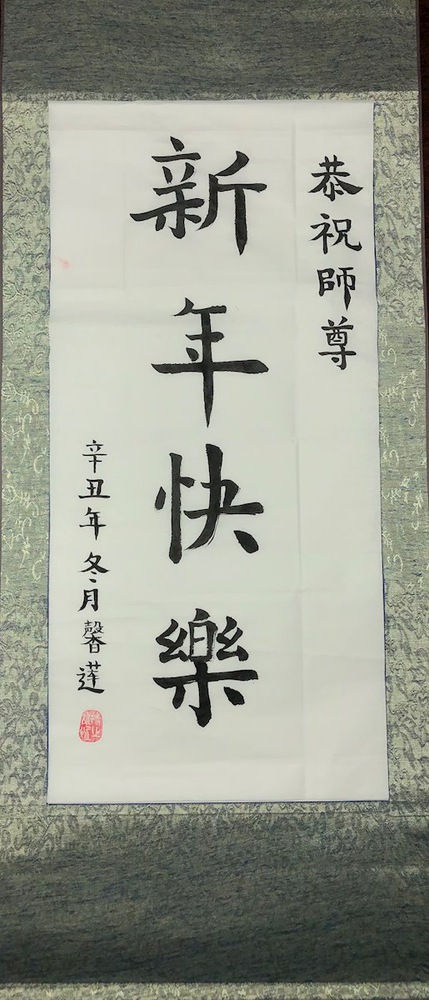 恭祝師尊
新年快樂
辛丑年冬月馨蓮